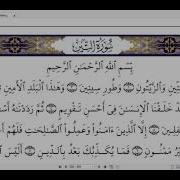 سُورَةُ التِّينِ
بِسْمِ اللَّهِ الرَّحْمَٰنِ الرَّحِيمِ
وَالتِّينِ وَالزَّيْتُونِ ۝ وَطُورِ سِينِينَ ۝ وَهَٰذَا الْبَلَدِ الْأَمِينِ
لَقَدْ خَلَقْنَا الْإِنسَانَ فِي أَحْسَنِ تَقْوِيمٍ ۝ ثُمَّ رَدَدْنَاهُ
إِلَّا الَّذِينَ آمَنُوا وَعَمِلُوا الصَّالِحَاتِ فَلَهُمْ
مَمْنُونٍ ۝ فَمَا يُكَذِّبُكَ بَعْدُ بِالدِّينِ ۝ أَلَيْسَ